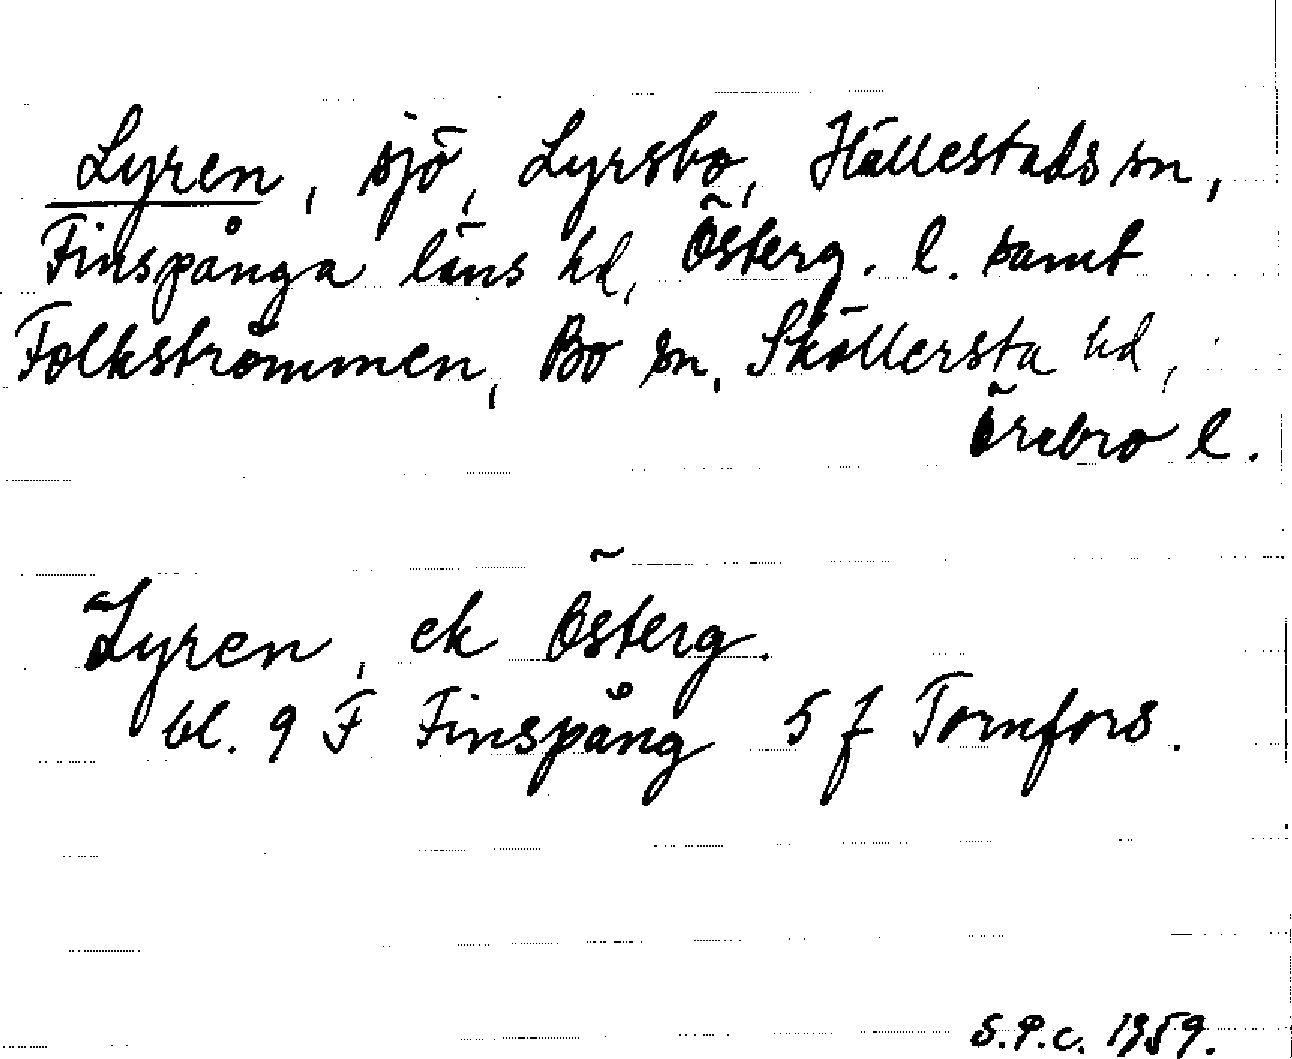 Lyren, sjö, Lyrsbo, Hällestads sn,
Finspånga läns hd, Österg. l. samt
Folkströmmen, Bo sn, Sköllersta hd,
Örebro l.
Lyren, ek Österg.
bl. 9 F Finspång 5 f Tomfors.
S.P.C. 1959.